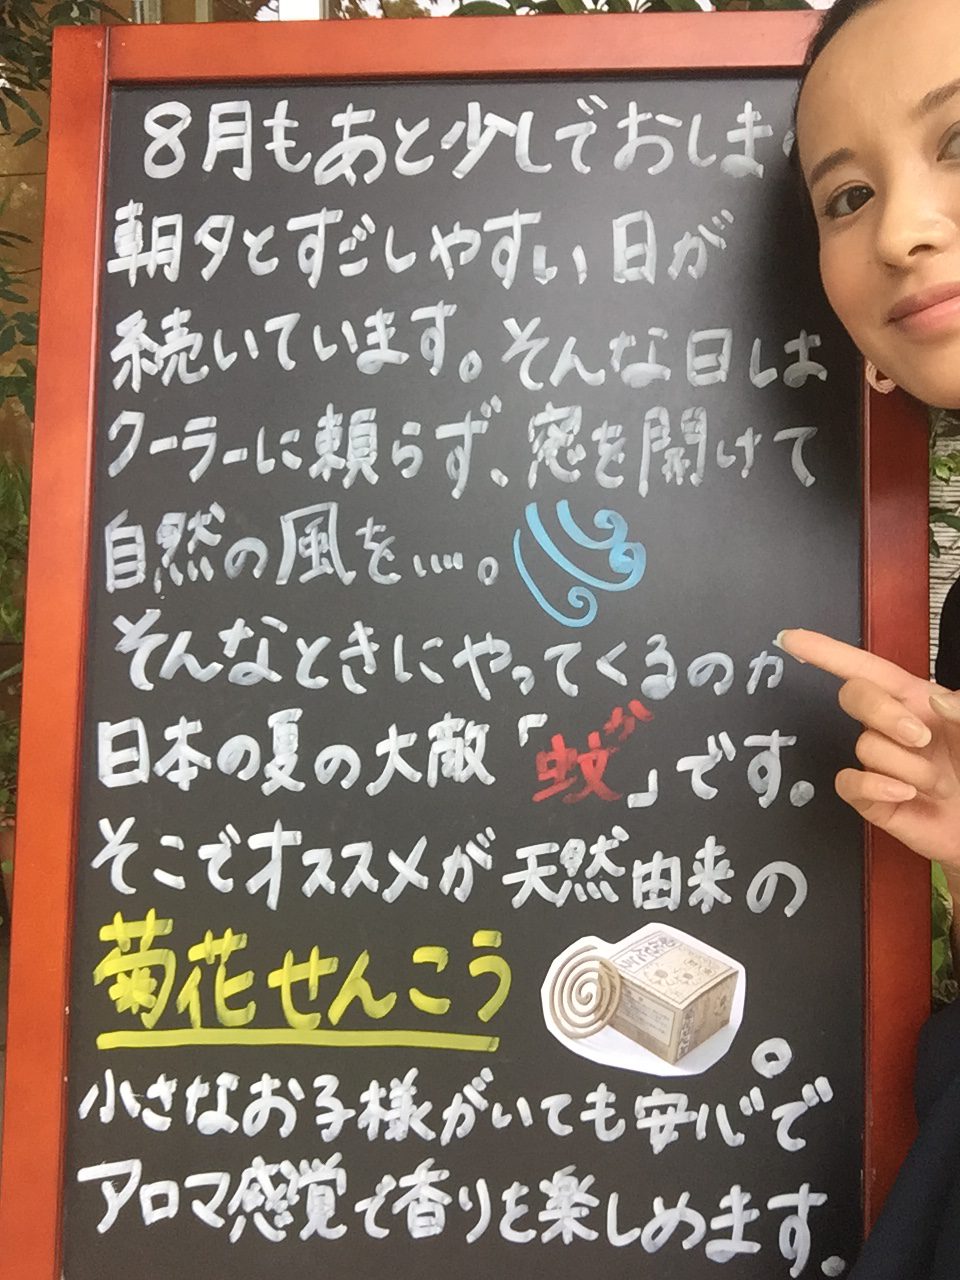 8月もあと少しでおしま
朝夕とすごしやすい日が
続いています。そんな日は
クーラーに頼らず、窓を開けて
自然の風を……。
そんなときにやってくるのが
日本の夏の大敵「蚊か」です。
そこでオススメが天然由来の
菊花せんこう。
小さなお子様がいても安心で
アロマ感覚で香りを楽しめます.